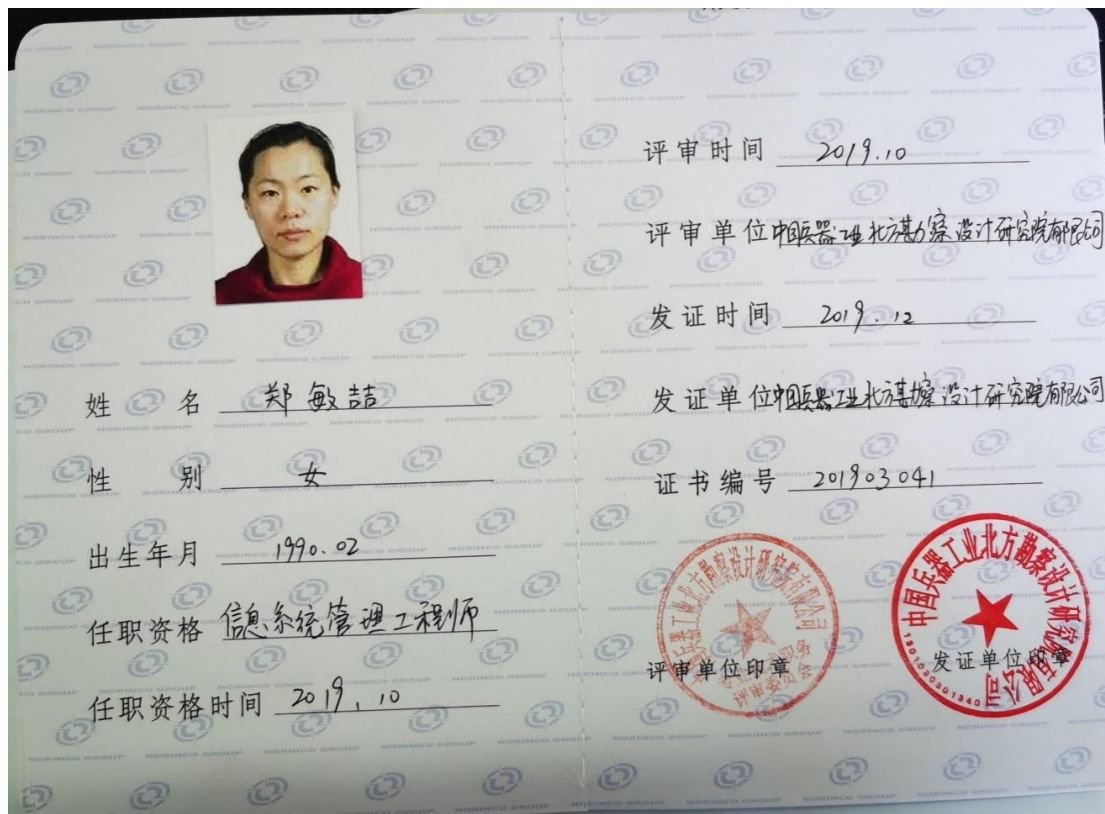 姓名 郑敏喆
性别 女
出生年月 1990.02
任职资格 信息系统管理工程师
任职资格时间 2019.10
评审时间 2019.10
评审单位 中国兵器工业北方勘察设计研究院有限公司
发证时间 2019.12
发证单位 中国兵器工业北方勘察设计研究院有限公司
证书编号 201903041
评审单位印章
发证单位印章
中国兵器工业北方勘察设计研究院有限公司
评审委员会
NORINCO GROUP